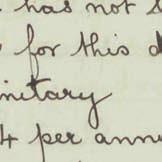 has not
for this
nitary
4 per ann